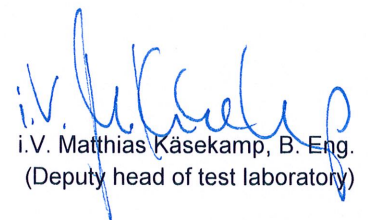 i.V. M. Käsekamp
i.V. Matthias Käsekamp, B. Eng.
(Deputy head of test laboratory)